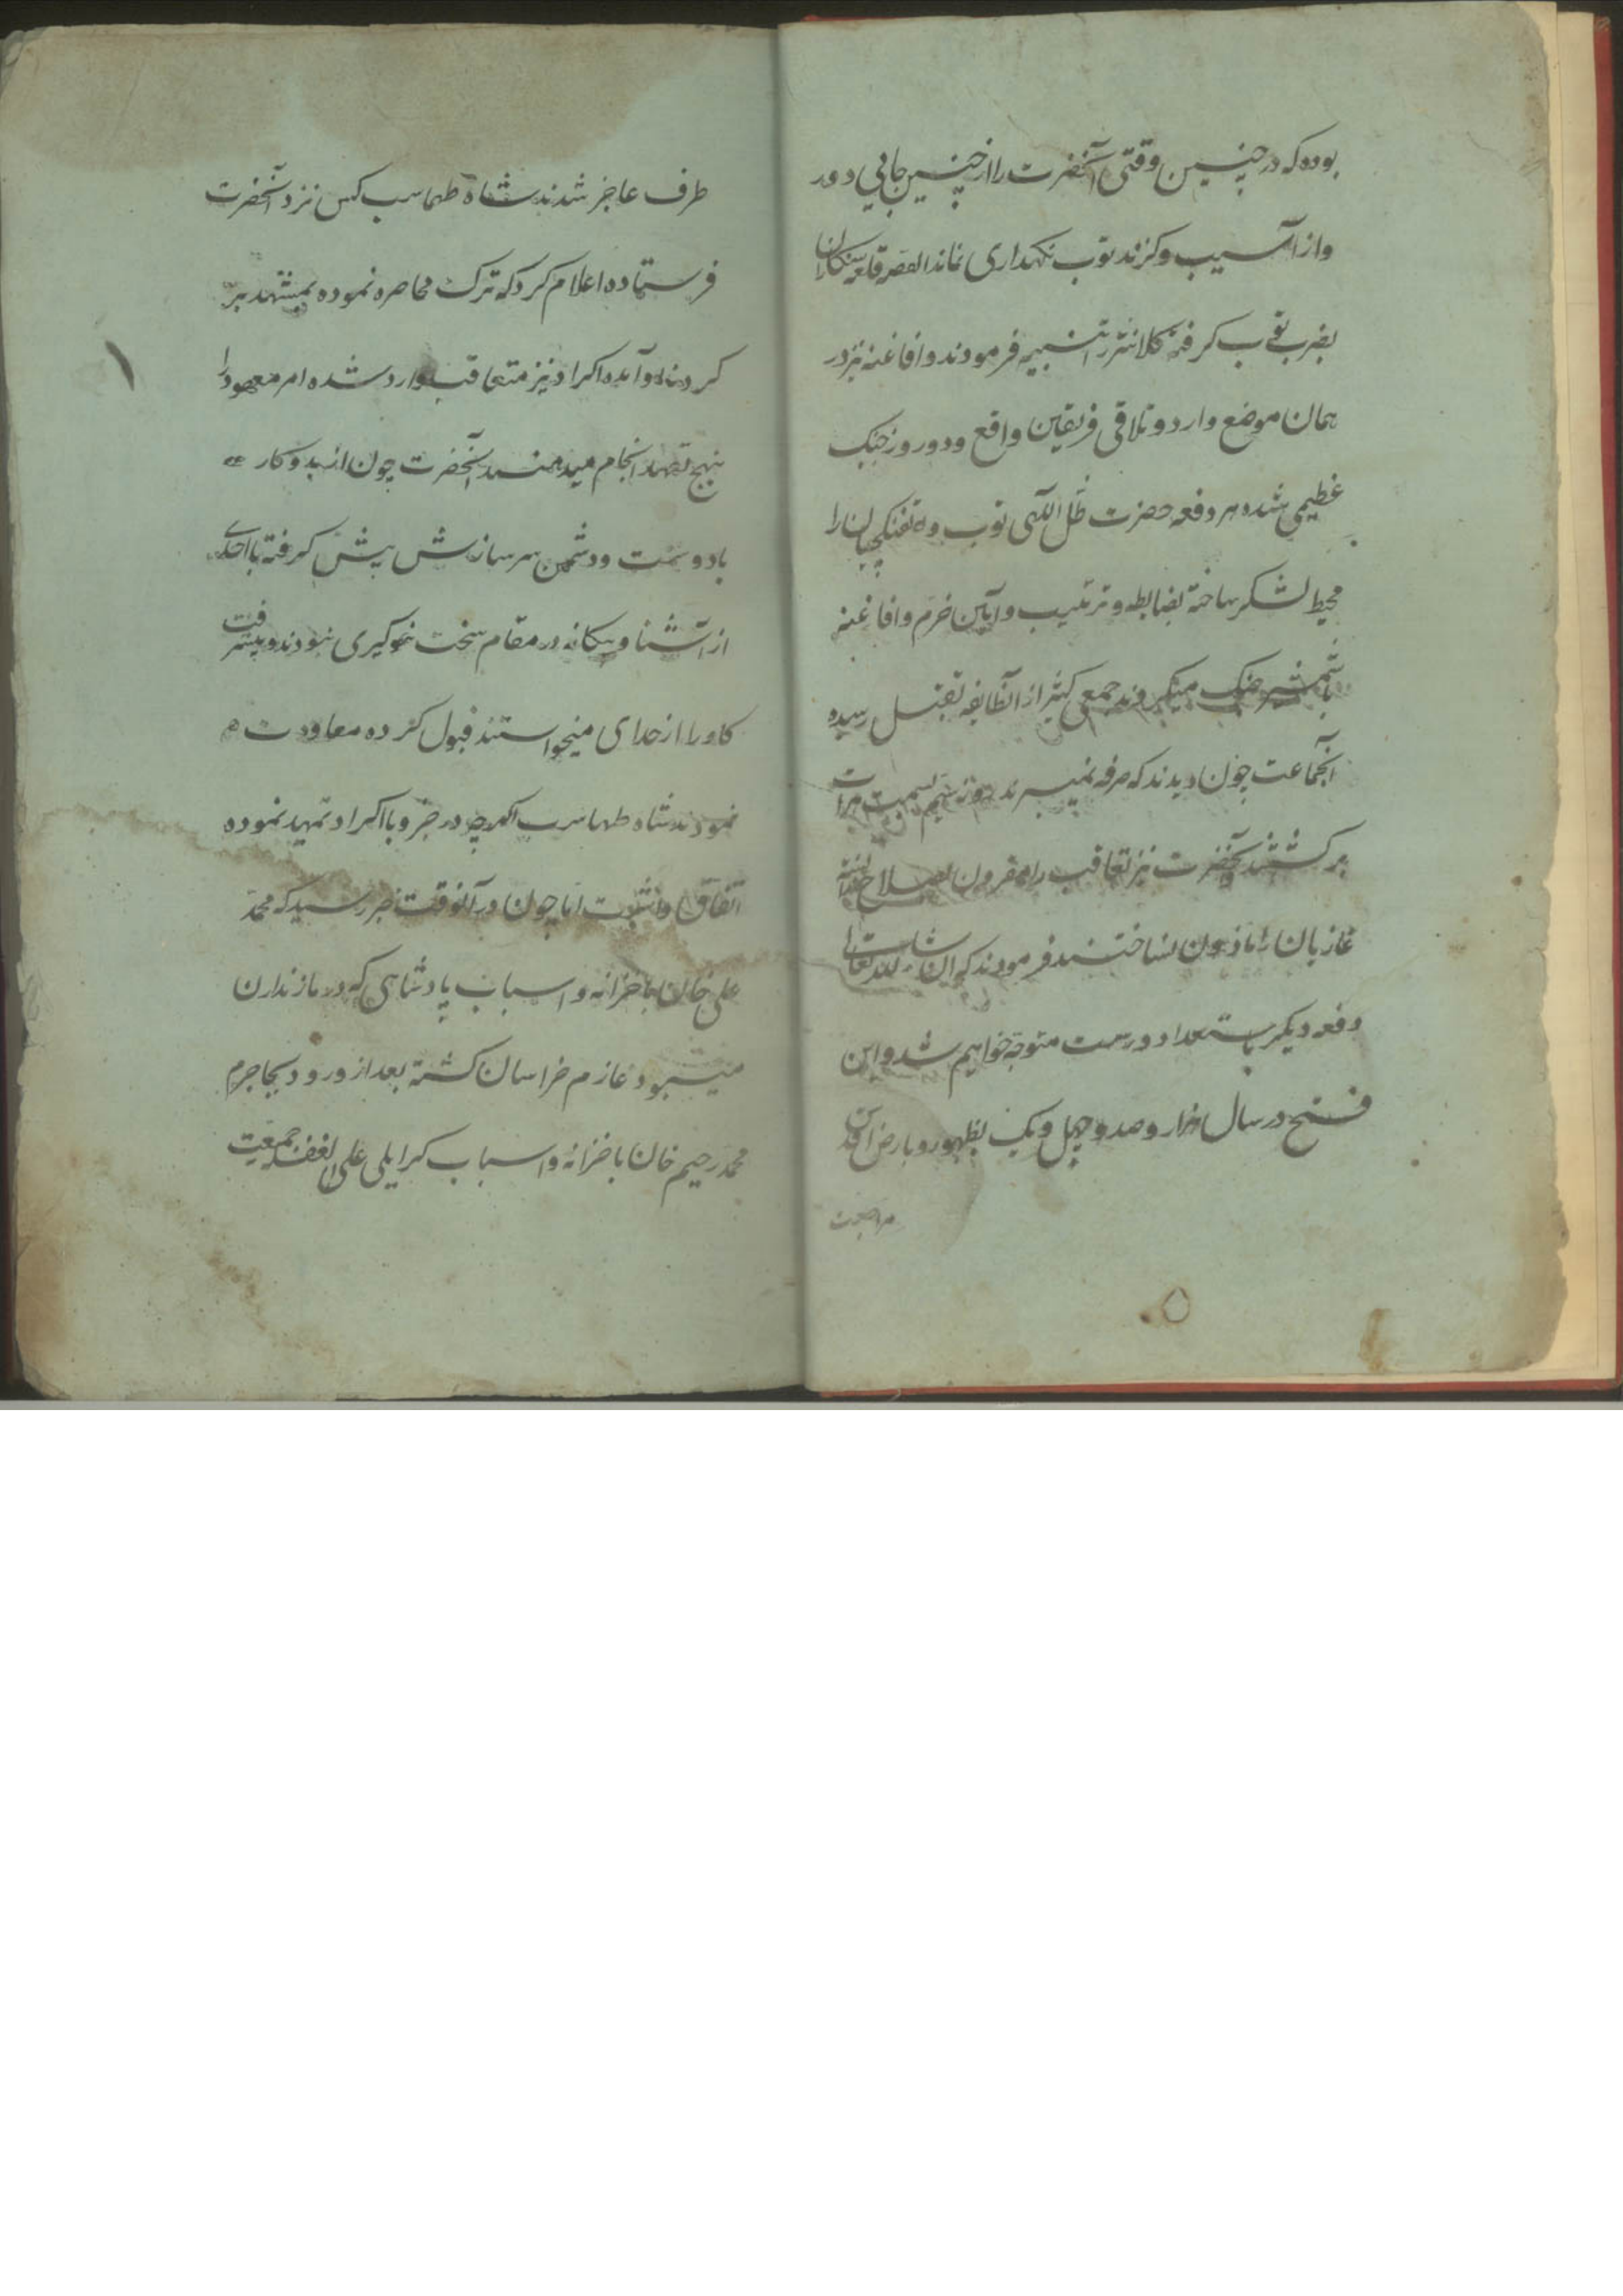 بوده که در چنین وقتی آنحضرت را از چنین جایی دور
و از آسیب و کزند توب نکهداری نماند القصه قلعه سنکان را
بضرب توب کرفته کلانتر را تنبیه فرمودند و افاغنه نیز در
همان موضع وارد و تلاقی فریقین واقع و دو روز جنک
عظیمی شده هر دفعه حضرت ظل اللهی توب و تفنکچیان را
محیط لشکر ساخته بضابطه و ترتیب و آیین خرم و افاغنه
بشمشیر جنک میکردند جمعی کثیر از انطایفه بقتل رسیده
آنجماعت چون دیدند که صرفه نمیبرند روز سیم بسمت هرات
برکشتند آنحضرت نیز تعاقب را مقرون بصلاح ندانسته
غازیان را ماذون نساختند فرمودند که ان شاء الله تعالی
دفعه دیکر باستعداد درست متوجه خواهیم شد و این
فتح در سال هزار و صد و چهل و یک بظهور و بارض اقدس
مراجعت
طرف عاجز شدند شاه طهماسب کس نزد آنحضرت
فرستاده اعلام کرد که ترک محاصره نموده بمشهد بر
کردند و آمده اکراد نیز متعاقب وارد شده امر معهود را
بنهج تعهد انجام میدهند آنحضرت چون از بدو کار
با دوست و دشمن سر سازش پیش کرفته با احدی
از آشنا و بیکانه در مقام سخت نموکیری نبودند و پیشرفت
کار را از خدای میخواستند قبول کرده معاودت
نمودند شاه طهماسب اکرچه در جزو با اکراد تمهید نموده
اتفاق داشت اما چون در آنوقت خبر رسید که محمد
علی خان با خزانه و اسباب پادشاهی که در مازندران
میبود عازم خراسان کشته بعد از ورود بجاجرم
محمد رحیم خان با خزانه و اسباب کرایلی علی الغفله جمعیت